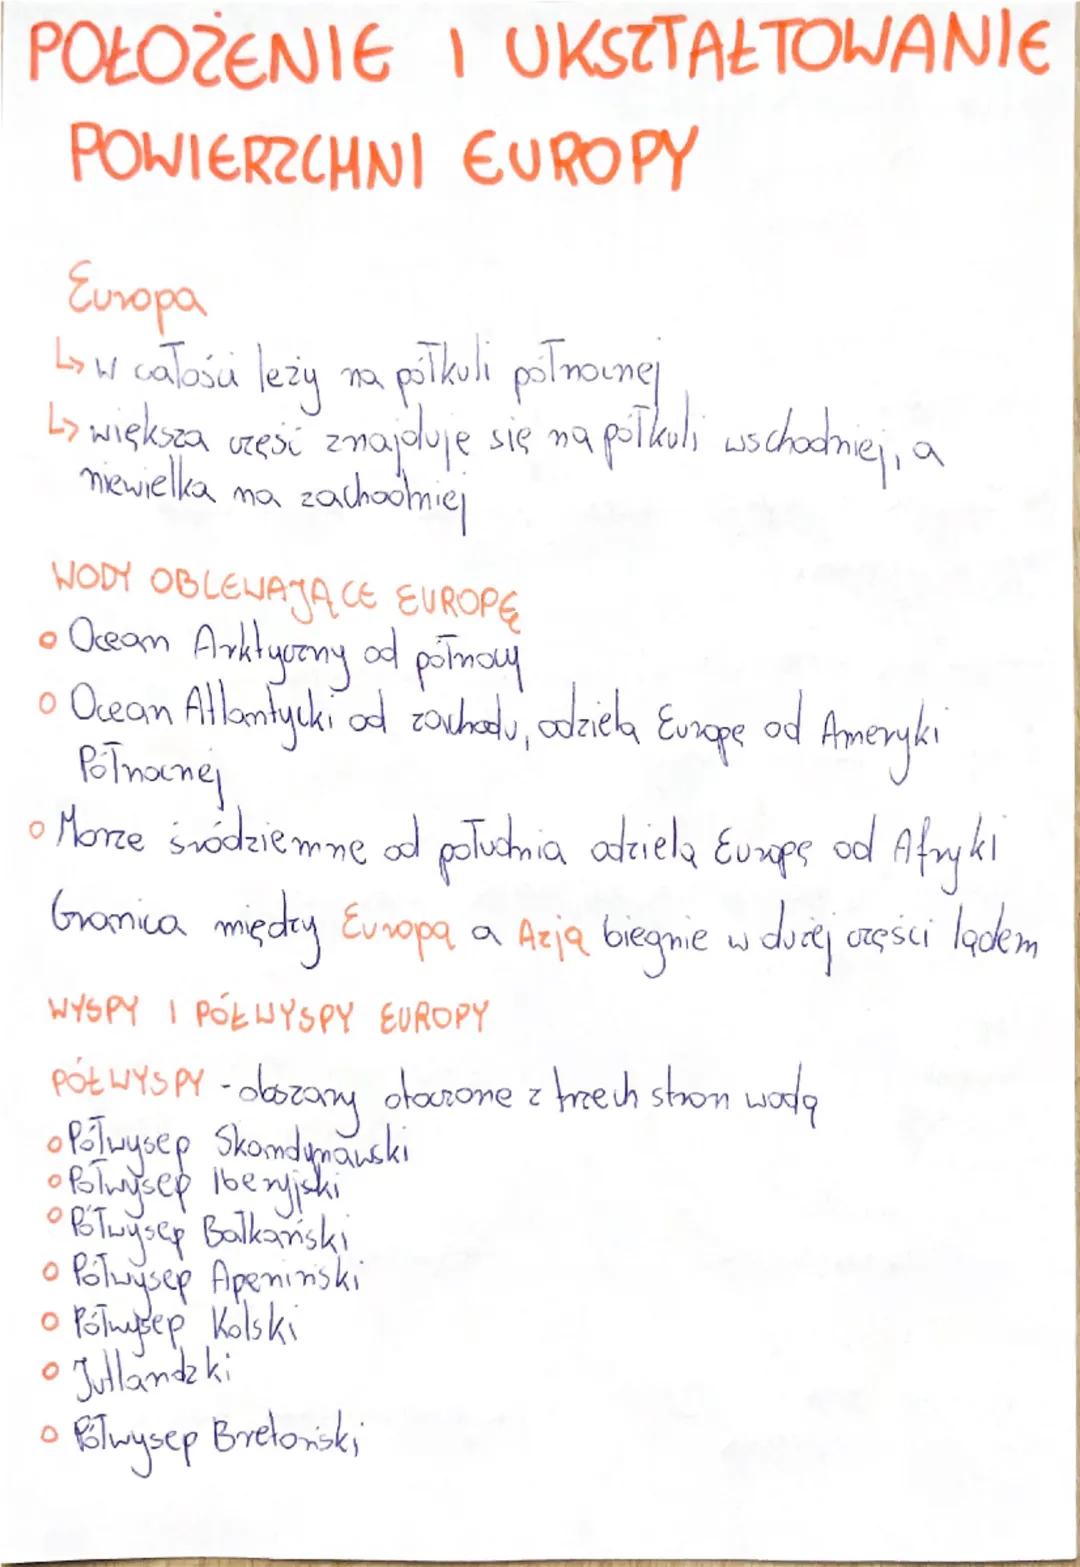 POŁOŻENIE I UKSZTAŁTOWANIE
POWIERZCHNI EUROPY
Europa
↳ w całości leży na półkuli północnej
↳ większa część znajduje się na półkuli wschodniej, a
niewielka na zachodniej
WODY OBLEWAJĄCE EUROPĘ
o Ocean Arktyczny od północy
o Ocean Atlantycki od zachodu, odziela Europę od Ameryki
Północnej
o Morze śródziemne od południa odziela Europę od Afryki
Granica między Europą a Azją biegnie w dużej części lądem
WYSPY I PÓŁWYSPY EUROPY
PÓŁWYSPY - obszary otoczone z trzech stron wodą
o Półwysep Skandynawski
o Półwysep Iberyjski
o Półwysep Bałkański
o Półwysep Apeniński
o Półwysep Kolski
o Jutlandzki
o Półwysep Bretoński